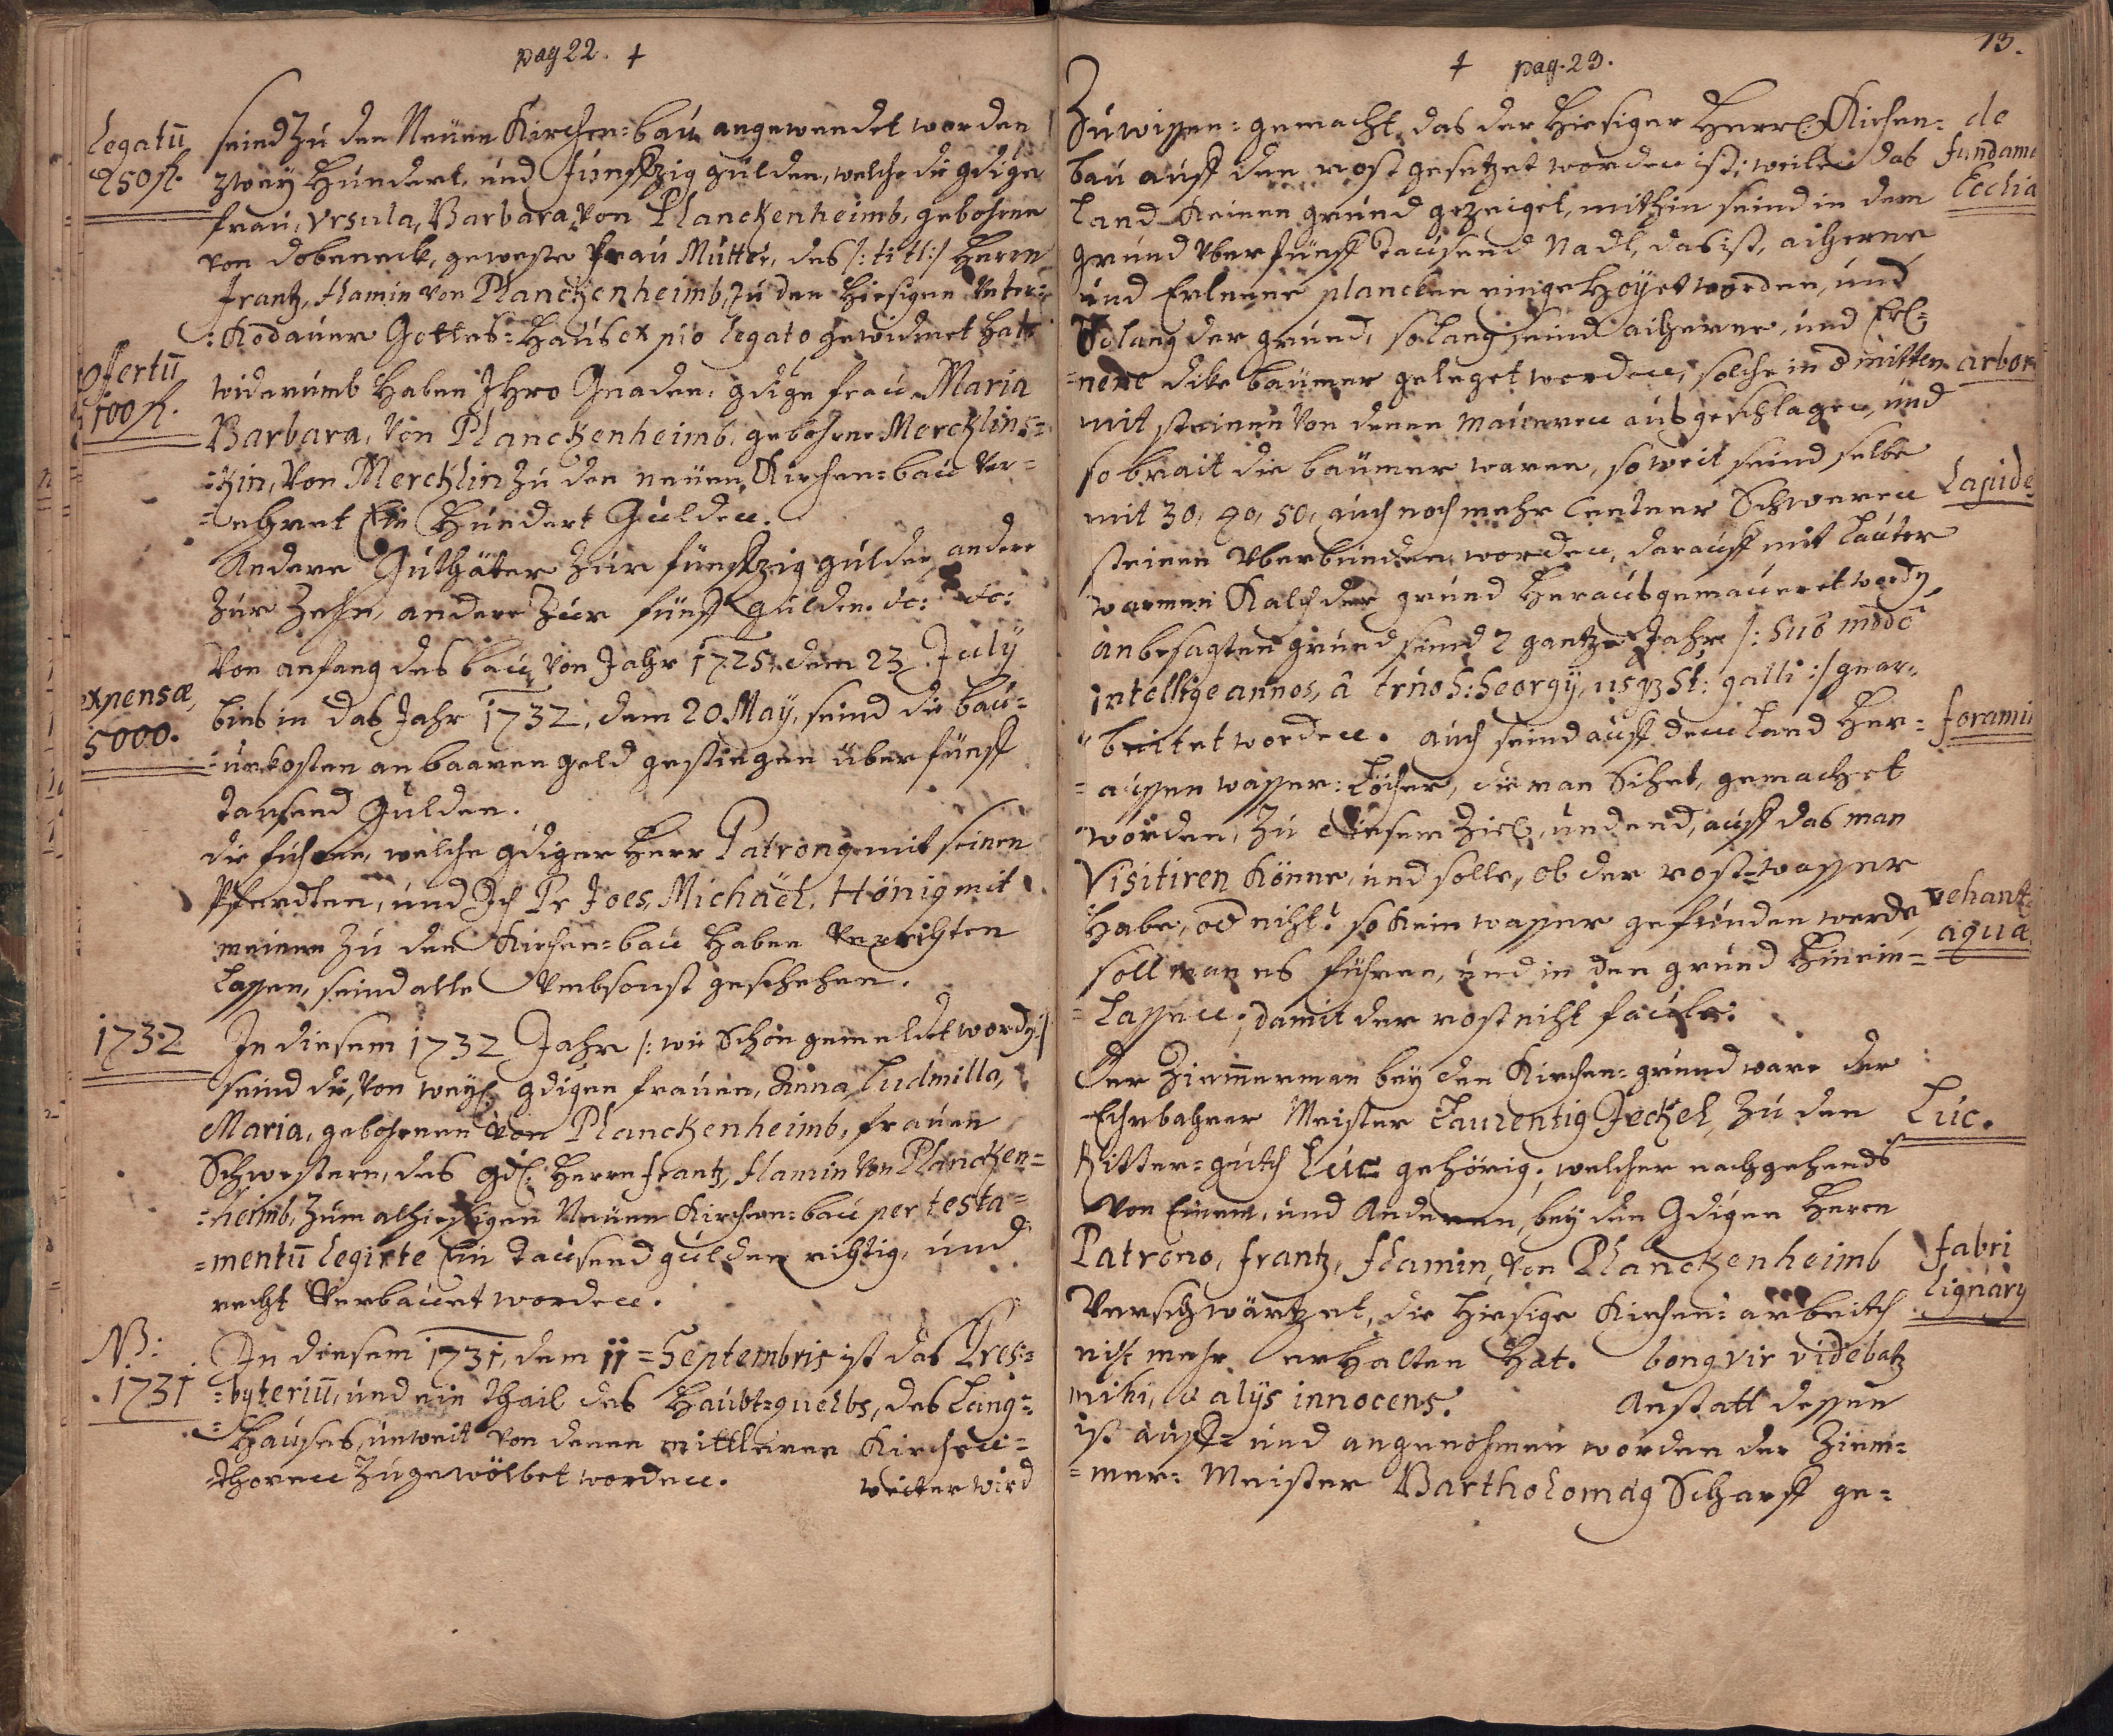 pag 22. +
Legatū
250 fl.
seind zu den Neüen Kirchen=bau angewendet worden
zweÿ Hundert, und fünffzig gülden, welche die gdige
frau, Vrsula, Barbara, von Planckenheimb, gebohrne
von dobeneck, geweste frau Mutter, des /: titl :/ Herrn
Frantz, Flamin von Planckenheimb, zu den Hiesigen Unter=
=Kodauer Gottes=Haus ex pio legato gewidmet Hat.
offertū
100 fl.
widerumb Haben Ihro Gnaden, gdige frau Maria
Barbara, Von Planckenheimb, gebohrne Mercklins=
=kin, von Mercklin zu den neüen Kirchen=bau Ver=
=ehret Ein Hundert Gulden.
Andere Guthäter zur fünffzig gulden, andere
zur Zehn, andere zur fünff gulden. etc: etc:
expensæ
5000.
Von anfang des bau, von Jahr 1725, dem 23 July
bies in das Jahr 1732, dem 20 Maÿ, seind die bau=
=unkosten an baaren geld gestiegen über fünff
tausend Gulden.
die fuhren, welche gdiger Herr Patrong mit seinen
Pferdten, und Ich Pr Joes, Michaël, Hönig mit
meinen zu den Kirchen=bau Haben Verrichten
Lassen, seind alle Umbsonst geschehen.
1732
In diesem 1732 Jahr /: wie Schon gemeldet word :/
seind die, von weÿl gdigen frauen, Anna, Ludmilla,
Maria, gebohrnen von Planckenheimb, frauen
Schwestern, des gdl: Herrn frantz, flamin Von Plancken=
=heimb, zum alhiesigen Neüen Kirchen=bau per testa=
=mentū legirte Ein tausend gulden richtig, und
recht Verbauet worden.
NB:
1731
In diesem 1731, dem 11=Septembris ist das Pres=
=byteriū, und ein theil des Haubt=guelbs, des Lang=
=Hauses, unweit von denen mittleren Kirchen=
thoren zugewölbet worden.
weiter wird
+ pag. 23.
13.
Zu wissen=gemacht, das der Hiesiger Herrl: Kirchen=
bau auff den rost gesetzet worden ist; weilen das
Land Keinen grund gezeiget, mithin seind in dem
grund Uber fünff tausend Nadl, das ist, aicherne
und Erlene plancken eingeHoÿet worden, und
So lang der grund, so lang seind aicherne, und Erl=
=nene dike baümer geleget worden, solche in d mitten
mit steinen Von denen maueren ausgeschlagen, und
so brait die baümer waren, so weit seind selbe
mit 30, 40, 50, auch noch mehr Centner Schweren
steinen Uberbunden worden, darauff mit lauter
warmen Kalch der grund Herausgemaueret word,
an besagten grund seind 2 gantze Jahr /: Sub modo
intellige annos, à trno S: Georgÿ, usqz St: galli :/ gear=
=beittet worden. auch seind auff dem Land Her=
=aussen wasser=Löcher, die man Sihet, gemachet
worden, zu diesem Ziel, und end, auff das man
Visitiren Könne, und solle, ob der rost=wasser
Habe, od nicht? so Kein wasser gefunden werde,
soll man es führen, und in den grund Hinein=
=Lassen, damit der rost nicht faule.
de
fundam
Ecclia
arbor
Lapide
foramin
vehant
aqua
Der Zimmerman beÿ den Kirchen=grund ware der
Ehrbahrer Meister Laurentig Jeckel, zu den
Ritter=guth Luc gehörig; welcher nachgehends
Von Einem, und Anderen, beÿ den Gdigen Herrn
Patrono, frantz, flamin, von Planckenheimb
Verschwärtzet, die Hiesige Kirchen=arbeith
nicht mehr erHalten Hat. bong vir videbatz
mihi, & alÿs innocens. Anstatt dessen
ist auff= und angenohmen worden der Zimm=
=mer=Meister Bartholomæg Scharff ge=
Luc.
fabri
lignarÿ